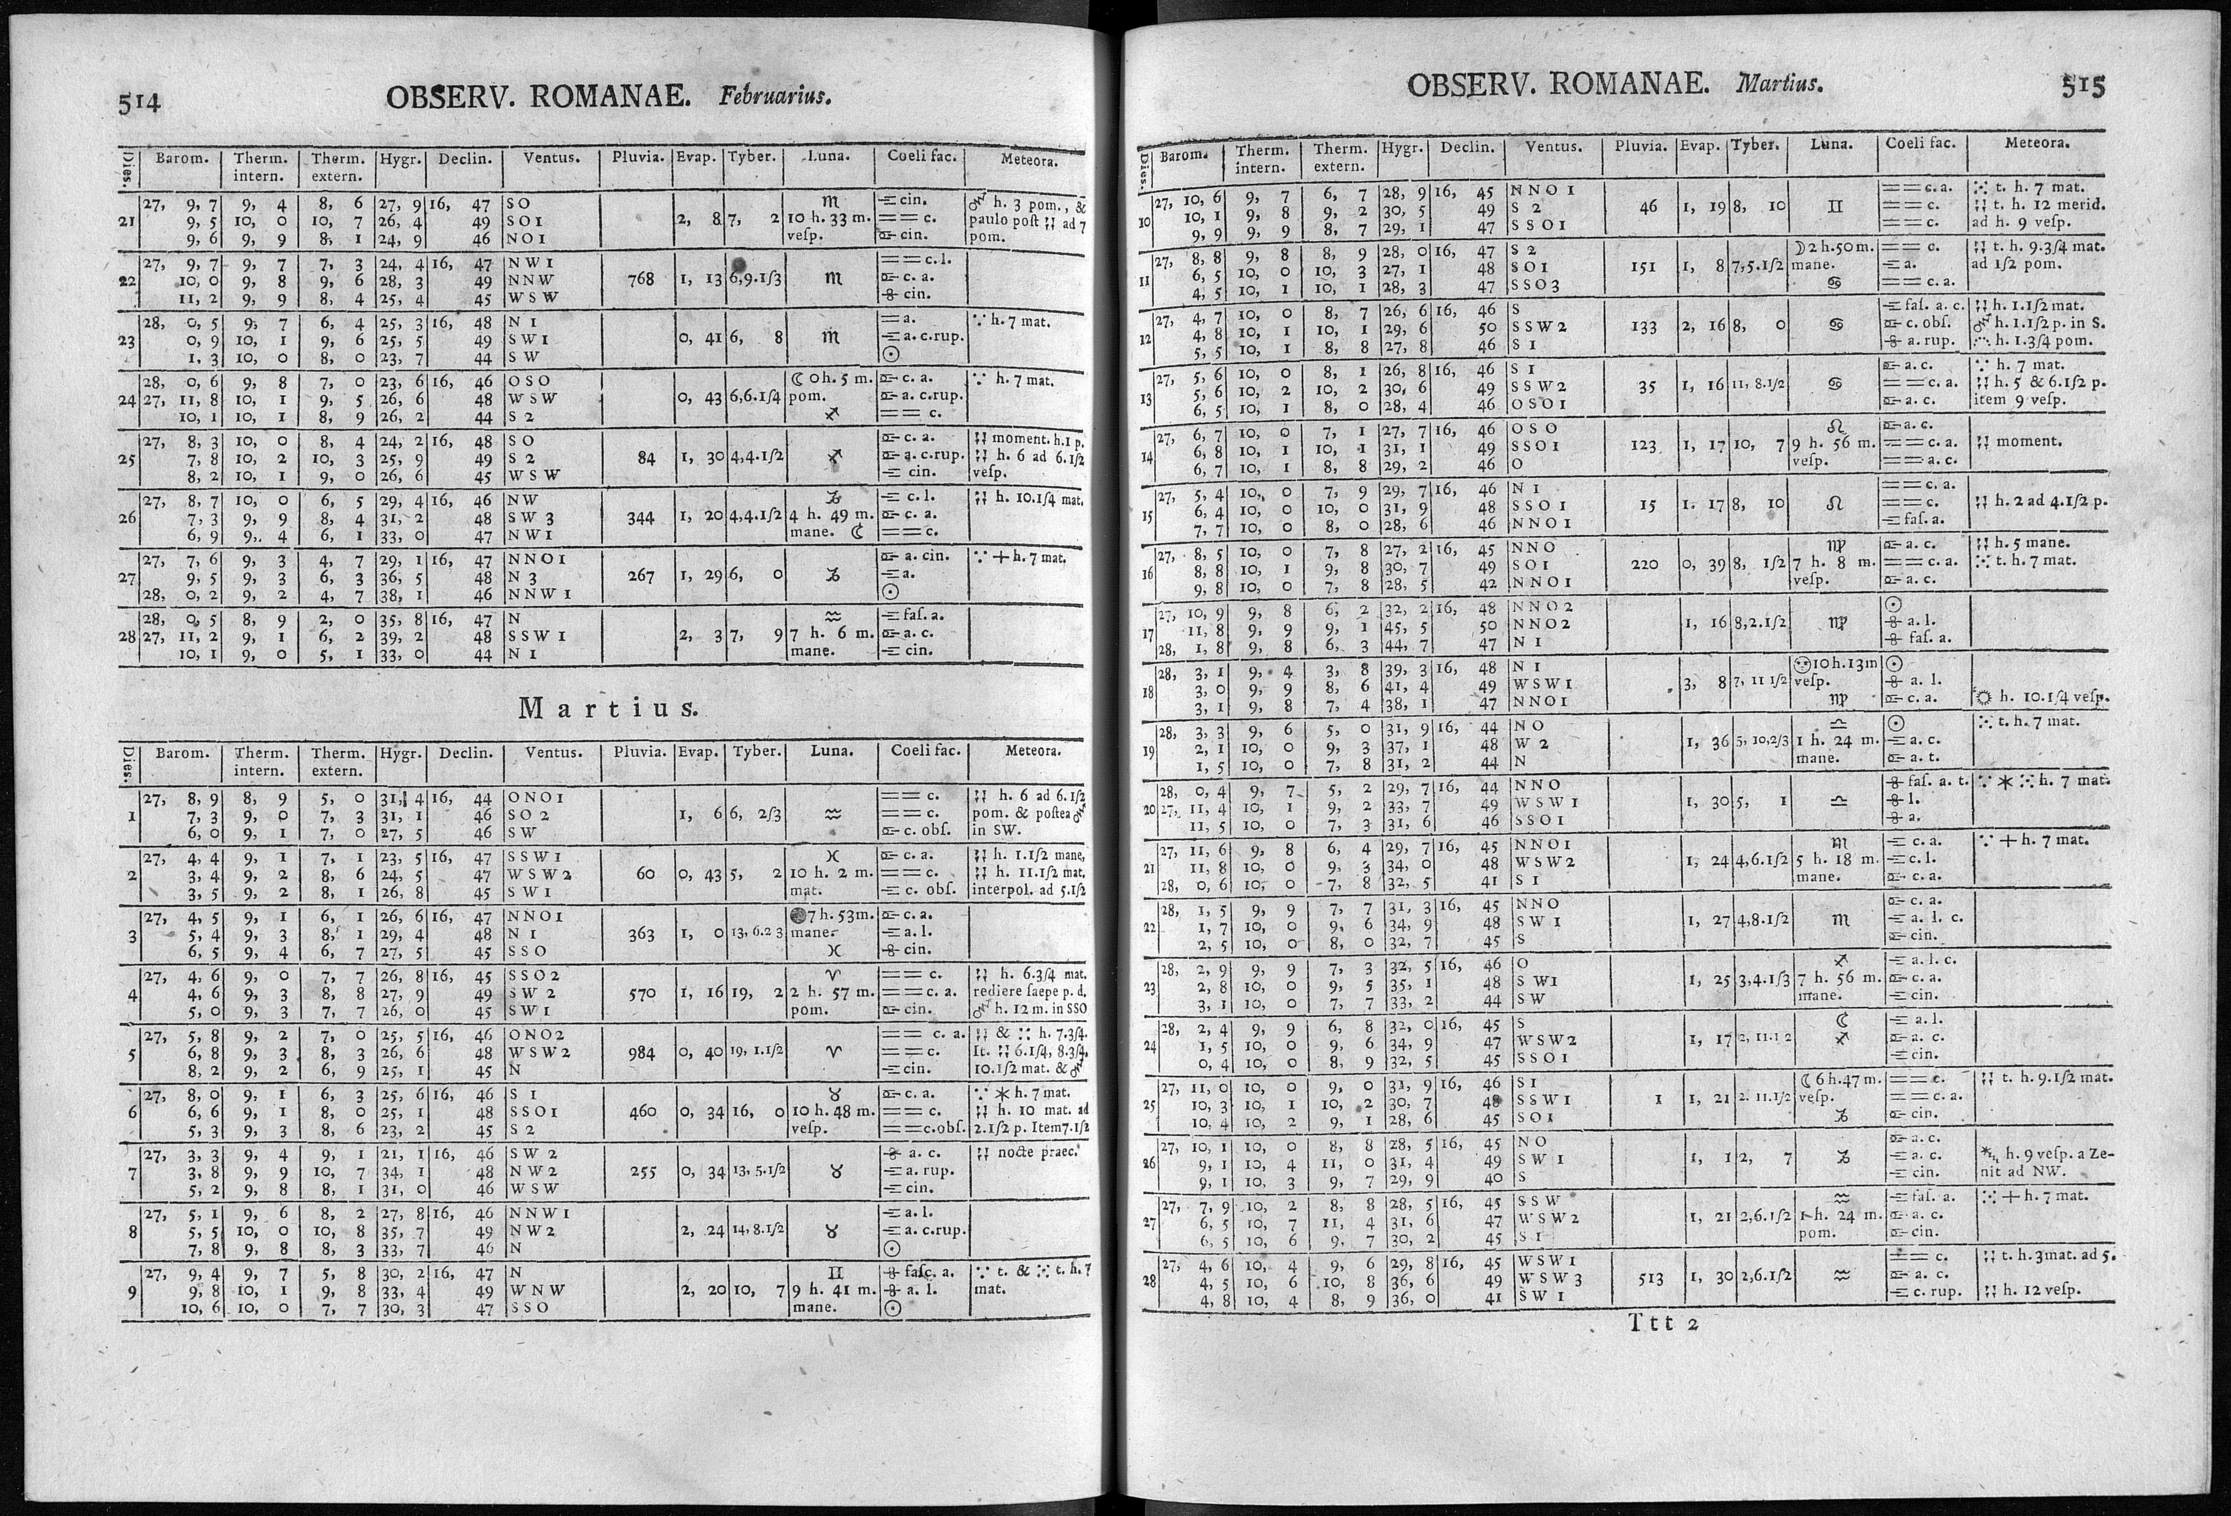 514 OBSERV. ROMANAE. Februarius.
Dies. Barom. Therm. intern. Therm. extern. Hygr. Declin. Ventus. Pluvia. Evap. Tyber. Luna. Coeli fac. Meteora.
27, 9, 7 9, 4 8, 6 27, 9 16, 47 S O ♏ cin. h. 3 pom., &
21 9, 5 10, 0 10, 7 26, 4 49 S O 1 2, 8 7, 2 10 h. 33 m. == c. paulo poſt ad 7
9, 6 9, 9 8, 1 24, 9 46 N O 1 veſp. cin. pom.
27, 9, 7 9, 7 7, 3 24, 4 16, 47 N W 1 == c. l.
22 10, 0 9, 8 9, 6 28, 3 49 N N W 768 1, 13 6,9.1/3 ♏ c. a.
11, 2 9, 9 8, 4 25, 4 45 W S W cin.
28, 0, 5 9, 7 6, 4 25, 3 16, 48 N 1 = a. ∵ h. 7 mat.
23 0, 9 10, 1 9, 6 25, 5 49 S W 1 0, 41 6, 8 ♏ a. c. rup.
1, 3 10, 0 8, 0 23, 7 44 S W ☉
28, 0, 6 9, 8 7, 0 23, 6 16, 46 O S O ☾ 0 h. 5 m. c. a. ∵ h. 7 mat.
24 27, 11, 8 10, 1 9, 5 26, 6 48 W S W 0, 43 6,6.1/4 pom. a. c. rup.
10, 1 10, 1 8, 9 26, 2 44 S 2 ♐ == c.
27, 8, 3 10, 0 8, 4 24, 2 16, 48 S O c. a. moment. h. 1 p.
25 7, 8 10, 2 10, 3 25, 9 49 S 2 84 1, 30 4,4.1/2 ♐ a. c. rup. h. 6 ad 6.1/2
8, 2 10, 1 9, 0 26, 6 45 W S W cin. veſp.
27, 8, 7 10, 0 6, 5 29, 4 16, 46 N W ♑ c. l. h. 10.1/4 mat.
26 7, 3 9, 9 8, 4 31, 2 48 S W 3 344 1, 20 4,4.1/2 4 h. 49 m. c. a.
6, 9 9, 4 6, 1 33, 0 47 N W 1 mane. ☾ == c.
27, 7, 6 9, 3 4, 7 29, 1 16, 47 N N O 1 a. cin. ∵ + h. 7 mat.
27 9, 5 9, 3 6, 3 36, 5 48 N 3 267 1, 29 6, 0 ♑ a.
28, 0, 2 9, 2 4, 7 38, 1 46 N N W 1 ☉
28, 0, 5 8, 9 2, 0 35, 8 16, 47 N ♒ faſ. a.
28 27, 11, 2 9, 1 6, 2 39, 2 48 S S W 1 2, 3 7, 9 7 h. 6 m. a. c.
10, 1 9, 0 5, 1 33, 0 44 N 1 mane. cin.
Martius.
Dies. Barom. Therm. intern. Therm. extern. Hygr. Declin. Ventus. Pluvia. Evap. Tyber. Luna. Coeli fac. Meteora.
27, 8, 9 8, 9 5, 0 31, 4 16, 44 O N O 1 == c. h. 6 ad 6.1/2
1 7, 3 9, 0 7, 3 31, 1 46 S O 2 1, 6 6, 2/3 ♒ == c. pom. & poſtea
6, 0 9, 1 7, 0 27, 5 46 S W c. obſ. in SW.
27, 4, 4 9, 1 7, 1 23, 5 16, 47 S S W 1 ♓ c. a. h. 1.1/2 mane,
2 3, 4 9, 2 8, 6 24, 5 47 W S W 2 60 0, 43 5, 2 10 h. 2 m. == c. h. 11.1/2 mat.
3, 5 9, 2 8, 1 26, 8 45 S W 1 mat. c. obſ. interpol. ad 5.1/2
27, 4, 5 9, 1 6, 1 26, 6 16, 47 N N O 1 ● 7 h. 53 m. c. a.
3 5, 4 9, 3 8, 1 29, 4 48 N 1 363 1, 0 13, 6.2 3 mane. a. l.
6, 5 9, 4 6, 7 27, 5 45 S S O ♓ cin.
27, 4, 6 9, 0 7, 7 26, 8 16, 45 S S O 2 ♈ == c. h. 6.3/4 mat.
4 4, 6 9, 3 8, 8 27, 9 49 S W 2 570 1, 16 19, 2 2 h. 57 m. == c. a. rediere ſaepe p. d.
5, 0 9, 3 7, 7 26, 0 45 S W 1 pom. cin. h. 12 m. in SSO
27, 5, 8 9, 2 7, 0 25, 5 16, 46 O N O 2 == c. a. & h. 7.3/4.
5 6, 8 9, 3 8, 3 26, 6 48 W S W 2 984 0, 40 19, 1.1/2 ♈ == c. It. 6.1/4, 8.3/4,
8, 2 9, 2 6, 9 25, 1 45 N cin. 10.1/2 mat. &
27, 8, 0 9, 1 6, 3 25, 6 16, 46 S 1 ♉ c. a. ∵ * h. 7 mat.
6 6, 6 9, 1 8, 0 25, 1 48 S S O 1 460 0, 34 16, 0 10 h. 48 m. == c. h. 10 mat. ad
5, 3 9, 3 8, 6 23, 2 45 S 2 veſp. == c. obſ. 2.1/2 p. Item 7.1/2
27, 3, 3 9, 4 9, 1 21, 1 16, 46 S W 2 a. c. nocte praec.
7 3, 8 9, 9 10, 7 34, 1 48 N W 2 255 0, 34 13, 5.1/2 ♉ a. rup.
5, 2 9, 8 8, 1 31, 0 46 W S W cin.
27, 5, 1 9, 6 8, 2 27, 8 16, 46 N N W 1 a. l.
8 5, 5 10, 0 10, 8 35, 7 49 N W 2 2, 24 14, 8.1/2 ♉ a. c. rup.
7, 8 9, 8 8, 3 33, 7 46 N ☉
27, 9, 4 9, 7 5, 8 30, 2 16, 47 N ♊ faſc. a. ∵ t. & t. h. 7
9 9, 8 10, 1 9, 8 33, 4 49 W N W 2, 20 10, 7 9 h. 41 m. a. l. mat.
10, 6 10, 0 7, 7 30, 3 47 S S O mane. ☉
OBSERV. ROMANAE. Martius. 515
Dies. Barom. Therm. intern. Therm. extern. Hygr. Declin. Ventus. Pluvia. Evap. Tyber. Luna. Coeli fac. Meteora.
27, 10, 6 9, 7 6, 7 28, 9 16, 45 N N O 1 == c. a. t. h. 7 mat.
10 10, 1 9, 8 9, 2 30, 5 49 S 2 46 1, 19 8, 10 ♊ == c. t. h. 12 merid.
9, 9 9, 9 8, 7 29, 1 47 S S O 1 == c. ad h. 9 veſp.
27, 8, 8 9, 8 8, 9 28, 0 16, 47 S 2 ☽ 2 h. 50 m. == c. t. h. 9.3/4 mat.
11 6, 5 10, 0 10, 3 27, 1 48 S O 1 151 1, 8 7,5.1/2 mane. a. ad 1/2 pom.
4, 5 10, 1 10, 1 28, 3 47 S S O 3 ♋ == c. a.
27, 4, 7 10, 0 8, 7 26, 6 16, 46 S faſ. a. c. h. 1.1/2 mat.
12 4, 8 10, 1 10, 1 29, 6 50 S S W 2 133 2, 16 8, 0 ♋ c. obſ. h. 1.1/2 p. in S.
5, 5 10, 1 8, 8 27, 8 46 S 1 a. rup. h. 1.3/4 pom.
27, 5, 6 10, 0 8, 1 26, 8 16, 46 S 1 a. c. ∵ h. 7 mat.
13 5, 6 10, 2 10, 2 30, 6 49 S S W 2 35 1, 16 11, 8.1/2 ♋ == c. a. h. 5 & 6.1/2 p.
6, 5 10, 1 8, 0 28, 4 46 O S O 1 a. c. item 9 veſp.
27, 6, 7 10, 0 7, 1 27, 7 16, 46 O S O ♌ a. c.
14 6, 8 10, 1 10, 1 31, 1 49 S S O 1 123 1, 17 10, 7 9 h. 56 m. == c. a. moment.
6, 7 10, 1 8, 8 29, 2 46 O veſp. == a. c.
27, 5, 4 10, 0 7, 9 29, 7 16, 46 N 1 == c. a.
15 6, 4 10, 0 10, 0 31, 9 48 S S O 1 15 1. 17 8, 10 ♌ == c. h. 2 ad 4.1/2 p.
7, 7 10, 0 8, 0 28, 6 46 N N O 1 faſ. a.
27, 8, 5 10, 0 7, 8 27, 2 16, 45 N N O ♍ a. c. h. 5 mane.
16 8, 8 10, 1 9, 8 30, 7 49 S O 1 220 0, 39 8, 1/2 7 h. 8 m. == c. a. t. h. 7 mat.
9, 8 10, 0 7, 8 28, 5 42 N N O 1 veſp. a. c.
27, 10, 9 9, 8 6, 2 32, 2 16, 48 N N O 2 ☉
17 11, 8 9, 9 9, 1 45, 5 50 N N O 2 1, 16 8,2.1/2 ♍ a. l.
28, 1, 8 9, 8 6, 3 44, 7 47 N 1 faſ. a.
28, 3, 1 9, 4 3, 8 39, 3 16, 48 N 1 10 h. 13 m ☉
18 3, 0 9, 9 8, 6 41, 4 49 W S W 1 3, 8 7, 11 1/2 veſp. a. l.
3, 1 9, 8 7, 4 38, 1 47 N N O 1 ♍ c. a. h. 10.1/4 veſp.
28, 3, 3 9, 6 5, 0 31, 9 16, 44 N O ♎ ☉ t. h. 7 mat.
19 2, 1 10, 0 9, 3 37, 1 48 W 2 1, 36 5, 10,2/3 1 h. 24 m. a. c.
1, 5 10, 0 7, 8 31, 2 44 N mane. a. t.
28, 0, 4 9, 7 5, 2 29, 7 16, 44 N N O faſ. a. t. ∵ * h. 7 mat.
20 27, 11, 4 10, 1 9, 2 33, 7 49 W S W 1 1, 30 5, 1 ♎ l.
11, 5 10, 0 7, 3 31, 6 46 S S O 1 a.
27, 11, 6 9, 8 6, 4 29, 7 16, 45 N N O 1 ♏ c. a. ∵ + h. 7 mat.
21 11, 8 10, 0 9, 3 34, 0 48 W S W 2 1, 24 4,6.1/2 5 h. 18 m. c. l.
28, 0, 6 10, 0 7, 8 32, 5 41 S 1 mane. c. a.
28, 1, 5 9, 9 7, 7 31, 3 16, 45 N N O c. a.
22 1, 7 10, 0 9, 6 34, 9 48 S W 1 1, 27 4,8.1/2 ♏ a. l. c.
2, 5 10, 0 8, 0 32, 7 45 S cin.
28, 2, 9 9, 9 7, 3 32, 5 16, 46 O ♐ a. l. c.
23 2, 8 10, 0 9, 5 35, 1 48 S W 1 1, 25 3,4.1/3 7 h. 56 m. c. a.
3, 1 10, 0 7, 7 33, 2 44 S W mane. cin.
28, 2, 4 9, 9 6, 8 32, 0 16, 45 S ☾ a. l.
24 1, 5 10, 0 9, 6 34, 9 47 W S W 2 1, 17 2, 11.1 2 ♐ a. c.
0, 4 10, 0 8, 9 32, 5 45 S S O 1 cin.
27, 11, 0 10, 0 9, 0 31, 9 16, 46 S 1 ☾ 6 h. 47 m. == c. t. h. 9.1/2 mat.
25 10, 3 10, 1 10, 2 30, 7 48 S S W 1 1 1, 21 2. 11.1/2 veſp. == c. a.
10, 4 10, 2 9, 1 28, 6 45 S O 1 ♑ cin.
27, 10, 1 10, 0 8, 8 28, 5 16, 45 N O a. c.
26 9, 1 10, 4 11, 0 31, 4 49 S W 1 1, 1 2, 7 ♑ a. c. h. 9 veſp. a Ze-
9, 1 10, 3 9, 7 29, 9 40 S cin. nit ad NW.
27, 7, 9 10, 2 8, 8 28, 5 16, 45 S S W ♒ faſ. a. + h. 7 mat.
27 6, 5 10, 7 11, 4 31, 6 47 W S W 2 1, 21 2,6.1/2 1 h. 24 m. a. c.
6, 5 10, 6 9, 7 30, 2 45 S 1 pom. cin.
27, 4, 6 10, 4 9, 6 29, 8 16, 45 W S W 1 == c. t. h. 3 mat. ad 5.
28 4, 5 10, 6 10, 8 36, 6 49 W S W 3 513 1, 30 2,6.1/2 ♒ a. c.
4, 8 10, 4 8, 9 36, 0 41 S W 1 c. rup. h. 12 veſp.
Ttt 2